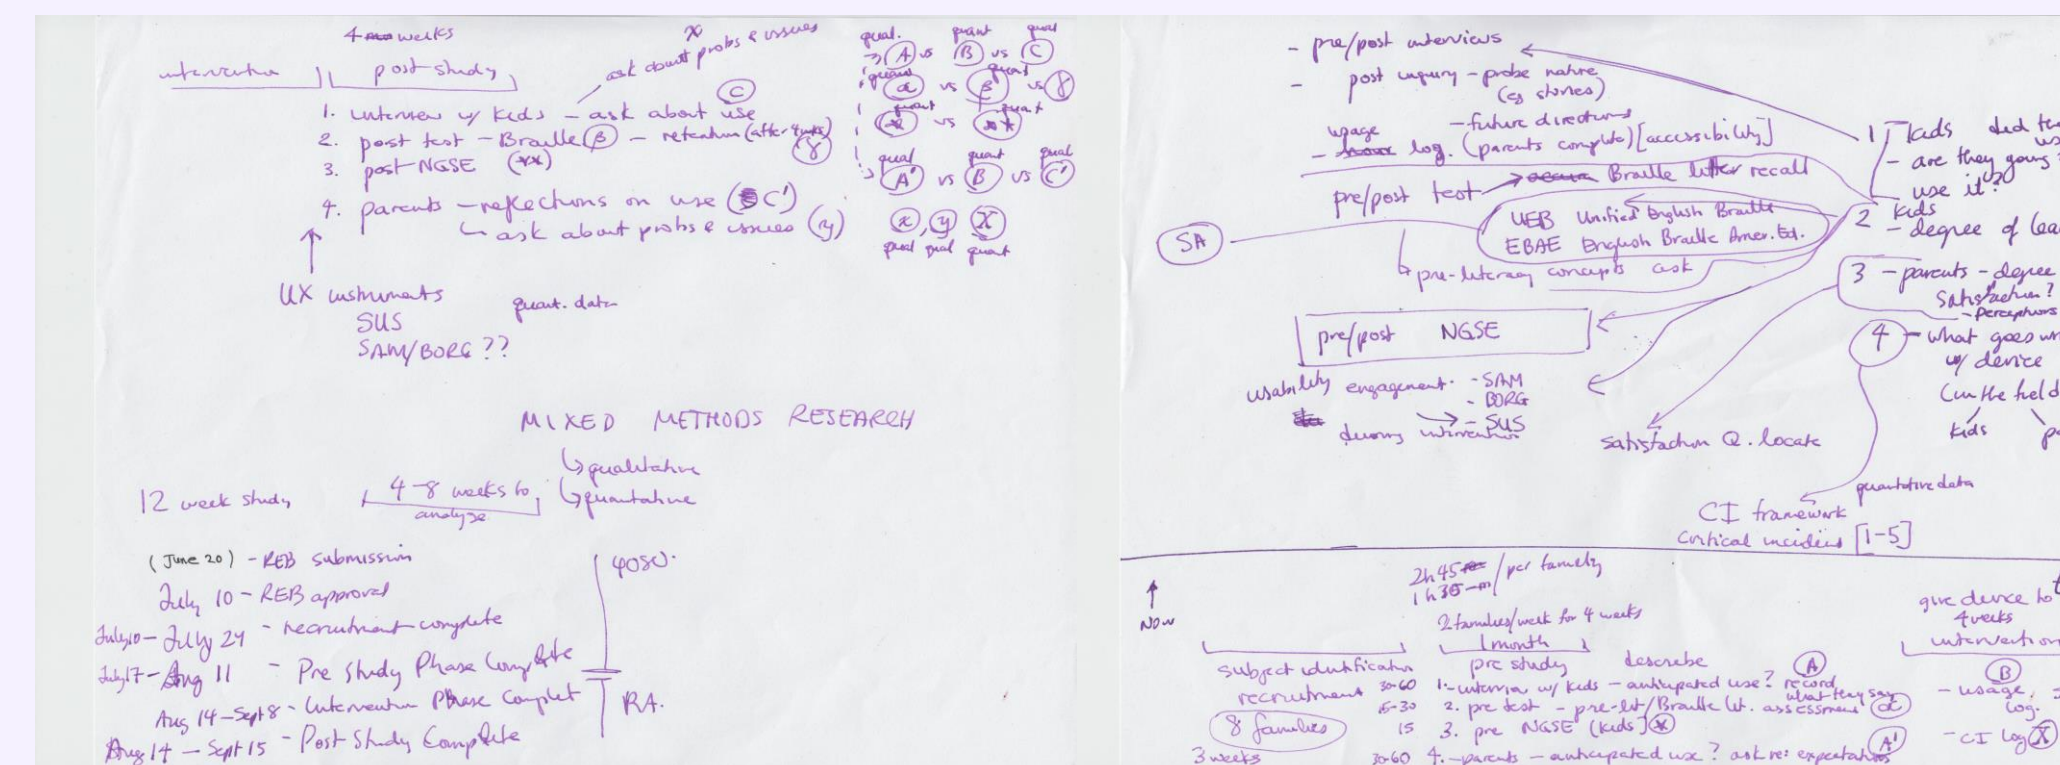 4 weeks
intervention post study
ask about probs & issues
x
1. interview w/ kids - ask about use
C
2. post test - Braille β - retention (after 4wks)
γ
3. post NGSE (**)
4. parents - reflections on use (C')
ask about probs & issues (y)
UX instruments
SUS
SAM/BORG ??
quant. data
qual. quant qual
A vs B vs C
quant quant
α vs β vs γ
quant quant
* vs **
qual quant qual
A' vs B vs C'
x, y X
qual qual quant
MIXED METHODS RESEARCH
qualitative
quantative
12 week study
4-8 weeks to
analyze
(June 20) - REB submission
July 10 - REB approval
July 10 - July 24 - recruitment complete
July 17 - Aug 11 - Pre Study Phase Complete
Aug 14 - Sept 8 - Intervention Phase Complet
Aug 14 - Sept 15 - Post Study Complete
4080.
RA.
- pre/post interviews
- post inquiry - probe nature
(eg stories)
- future directions
usage
- log. (parents complete) [accessibility]
pre/post test Braille letter recall
SA
UEB Unified English Braille
EBAE English Braille Amer. Ed.
pre-literacy concepts ask
pre/post NGSE
usability engagement. - SAM
- BORG
- SUS
during intervention
satisfaction Q. locate
1 kids did
- are they going
use it?
2 kids
- degree of
3 - parents - degree
satisfaction?
- perceptions
4 - what goes
w/ device
(in the field
kids
quantitive data
CI framework
critical incidens [1-5]
NOW
2h 45 / per family
1h 35 m
2 families/week for 4 weeks
1 month
subject identification
recruitment
8 families
3 weeks
pre study describe A
30-60 1. - interview w/ kids - anticipated use? record
what they say
15-30 2. pre test - pre-lit/Braille lit. assessment α
15 3. pre NGSE (kids) *
30-60 4. - parents - anticipated use? ask re: expectations A'
give device to
4 weeks
intervention
B
- usage
log.
- CI log X